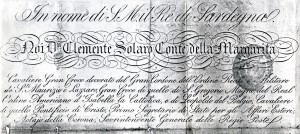 In nome di S. M. il Re di Sardegna
Noi Dn Clemente Solaro Conte della Margarita
Cavaliere Gran Croce decorato del Gran Cordone dell' Ordine Militare
de' Ss. Maurizio e Lazaro, Gran Croce di quello di S. Gregorio Magno, del Real
Ordine Americano d' Isabella la Cattolica, e di Leopoldo del Belgio, Cavaliere
di quello Pontificio di Cristo, Primo Segretario di Stato per gli Affari Esteri,
Notajo della Corona, Sovrintendente Generale delle Regie Poste